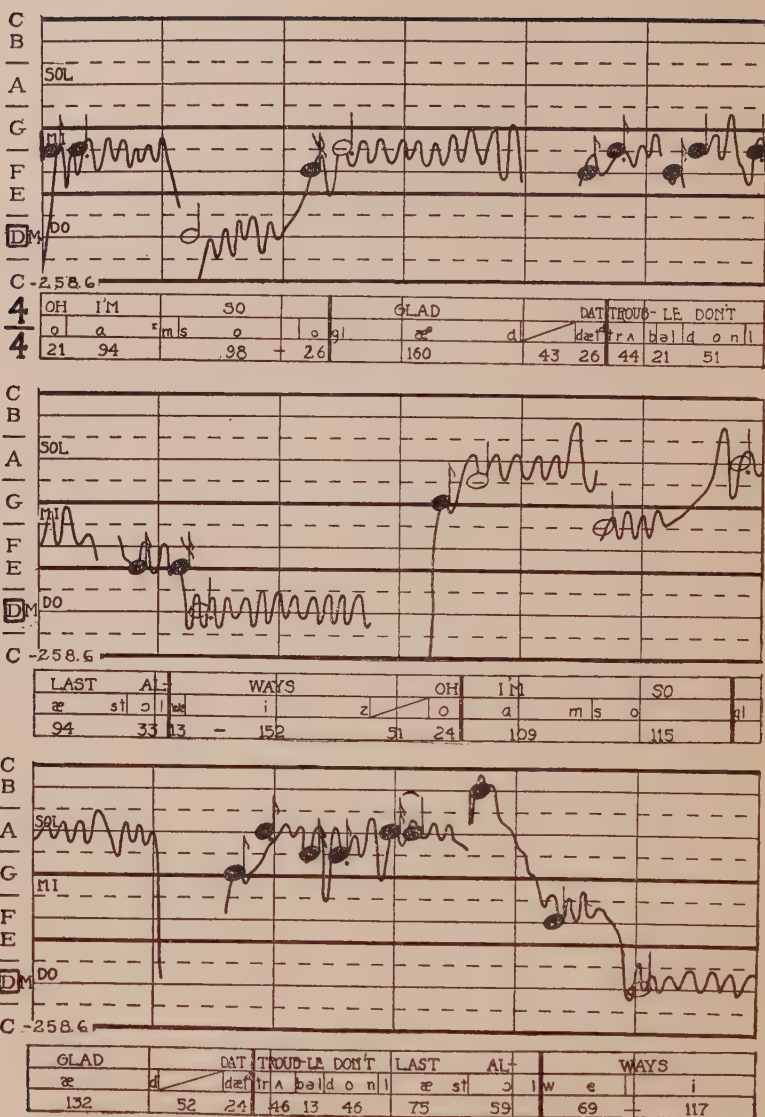 C
B
A SOL
G MI
F
E
D M DO
C -258.6
4/4
OH I'M SO GLAD DAT TROUB-LE DON'T
o a m s o o gl æ d dæt tr ʌ bəl d o n t
21 94 98 - 26 160 43 26 44 21 51
C
B
A SOL
G MI
F
E
D M DO
C -258.6
LAST AL- WAYS OH I'M SO
æ st ɔ l i z o a m s o gl
94 33 13 - 152 51 24 109 115
C
B
A SOL
G MI
F
E
D M DO
C -258.6
GLAD DAT TROUB-LE DON'T LAST AL- WAYS
æ d dæt tr ʌ bəl d o n t æ st ɔ l w e i
132 52 24 46 13 46 75 59 69 - 117